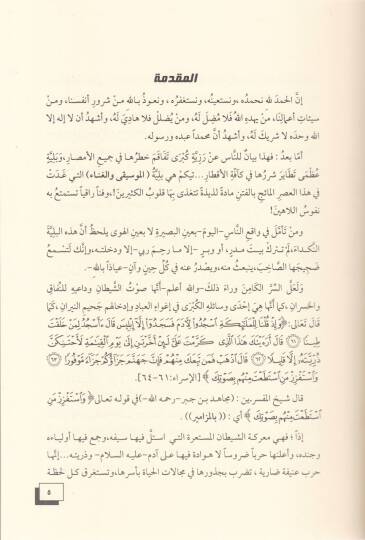 المقدمة
إنَّ الحمدَ لله نحمدُه ،ونستعينُه، ونستغفرُه ، ونعوذُ بالله منْ شرورِ أنفسنا، ومنْ
سيئاتِ أعمالِنا، منْ يهدهِ اللهُ فلا مُضِلَّ لَهُ، ومنْ يُضللْ فلا هاديَ لَهُ، وأشهدُ أن لا إله إلا
الله وحدَه لا شريكَ لهُ، وأشهدُ أنَّ محمداً عبده ورسوله.
أمَّا بعدُ : فهذا بيانٌ للنَّاسِ عنْ رَزِيَّةٍ كُبْرَى تَفَاقَمَ خطرُها في جميعِ الأمصارِ، وبَلِيَّةٍ
عُظْمَى تَطَايَرَ شررُها في كافَّةِ الأقطارِ... تيكم هي بليَّةُ (الموسيقى والغناء) التي غَدَتْ
في هذا العصرِ المائجِ بالفتنِ مادةً لذيذةً تتغذى بِهَا قلوبُ الكثيرينَ!،وفناً راقياً تستمتعُ به
نفوسُ اللاهينَ!
ومنْ تأمَّلَ في واقعِ النَّاسِ-اليومَ-بعينِ البصيرةِ لا بعينِ الهوى يلحظُ أنَّ هذه البليَّةَ
النَّكداءَ،لَمْ تتركْ بيتَ مَدَرٍ أو وبرٍ -إلا ما رحِمَ ربي-إلا ودخلته،وإنَّك لَتسمعُ
ضجيجَها الصَّاخبَ،ينبعثُ منه،ويصْدرُ عنه في كُلِّ حِينٍ وآنٍ-عياذاً باللهِ-.
ولعلَّ السِّرَّ الكَامِنَ وراءَ ذلكَ-والله أعلم-أنَّها صوْتُ الشَّيطانِ وداعيه للنِّفاقِ
والخسرانِ،كما أنَّها هِيَ إحْدَى وسائلِه الكُبْرَى في إغواءِ العبادِ وإدخالِهم جَحيمَ النيرانِ ،كَمَا
قالَ تَعَالَى:﴿وَإِذْ قُلْنَا لِلْمَلَٰٓئِكَةِ ٱسْجُدُوا۟ لِـَٔادَمَ فَسَجَدُوٓا۟ إِلَّآ إِبْلِيسَ قَالَ ءَأَسْجُدُ لِمَنْ خَلَقْتَ
طِينًا ۝٦١ قَالَ أَرَءَيْتَكَ هَٰذَا ٱلَّذِى كَرَّمْتَ عَلَىَّ لَئِنْ أَخَّرْتَنِ إِلَىٰ يَوْمِ ٱلْقِيَٰمَةِ لَأَحْتَنِكَنَّ
ذُرِّيَّتَهُۥٓ إِلَّا قَلِيلًا ۝٦٢ قَالَ ٱذْهَبْ فَمَن تَبِعَكَ مِنْهُمْ فَإِنَّ جَهَنَّمَ جَزَآؤُكُمْ جَزَآءً مَّوْفُورًا ۝٦٣
وَٱسْتَفْزِزْ مَنِ ٱسْتَطَعْتَ مِنْهُم بِصَوْتِكَ﴾ [الإسراء:٦١-٦٤].
قال شيخ المفسرين : (مجاهد بن جبر-رحمه الله-) في قوله تعالى﴿وَٱسْتَفْزِزْ مَنِ
ٱسْتَطَعْتَ مِنْهُم بِصَوْتِكَ﴾ أي : ((بالمزامير)) .
إذاً ؛ فهي معركة الشيطان المستعرة التي استلَّ فيها سيفه،وجمع فيها أولياءه،
وجنده، وأعلنها حرباً ضروساً لا هوادة فيها على آدم-عليه السلام- وذريته...إنَّها
حرب عنيفة ضارية ، تضرب بجذورها في مجالات الحياة بأسرها،وتستغرق كل لحظة
٥